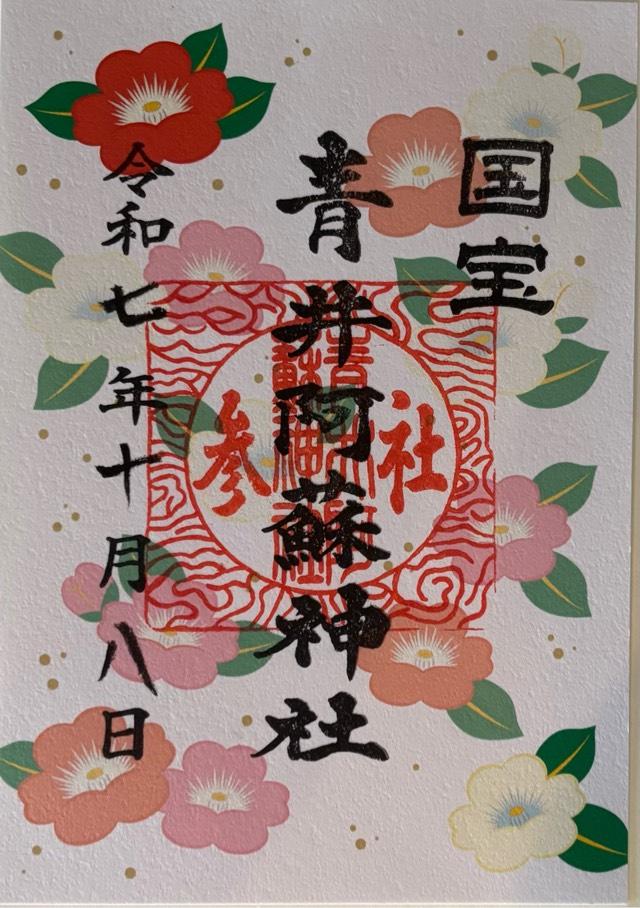 国宝
青井阿蘇神社
社参
令和七年十月八日